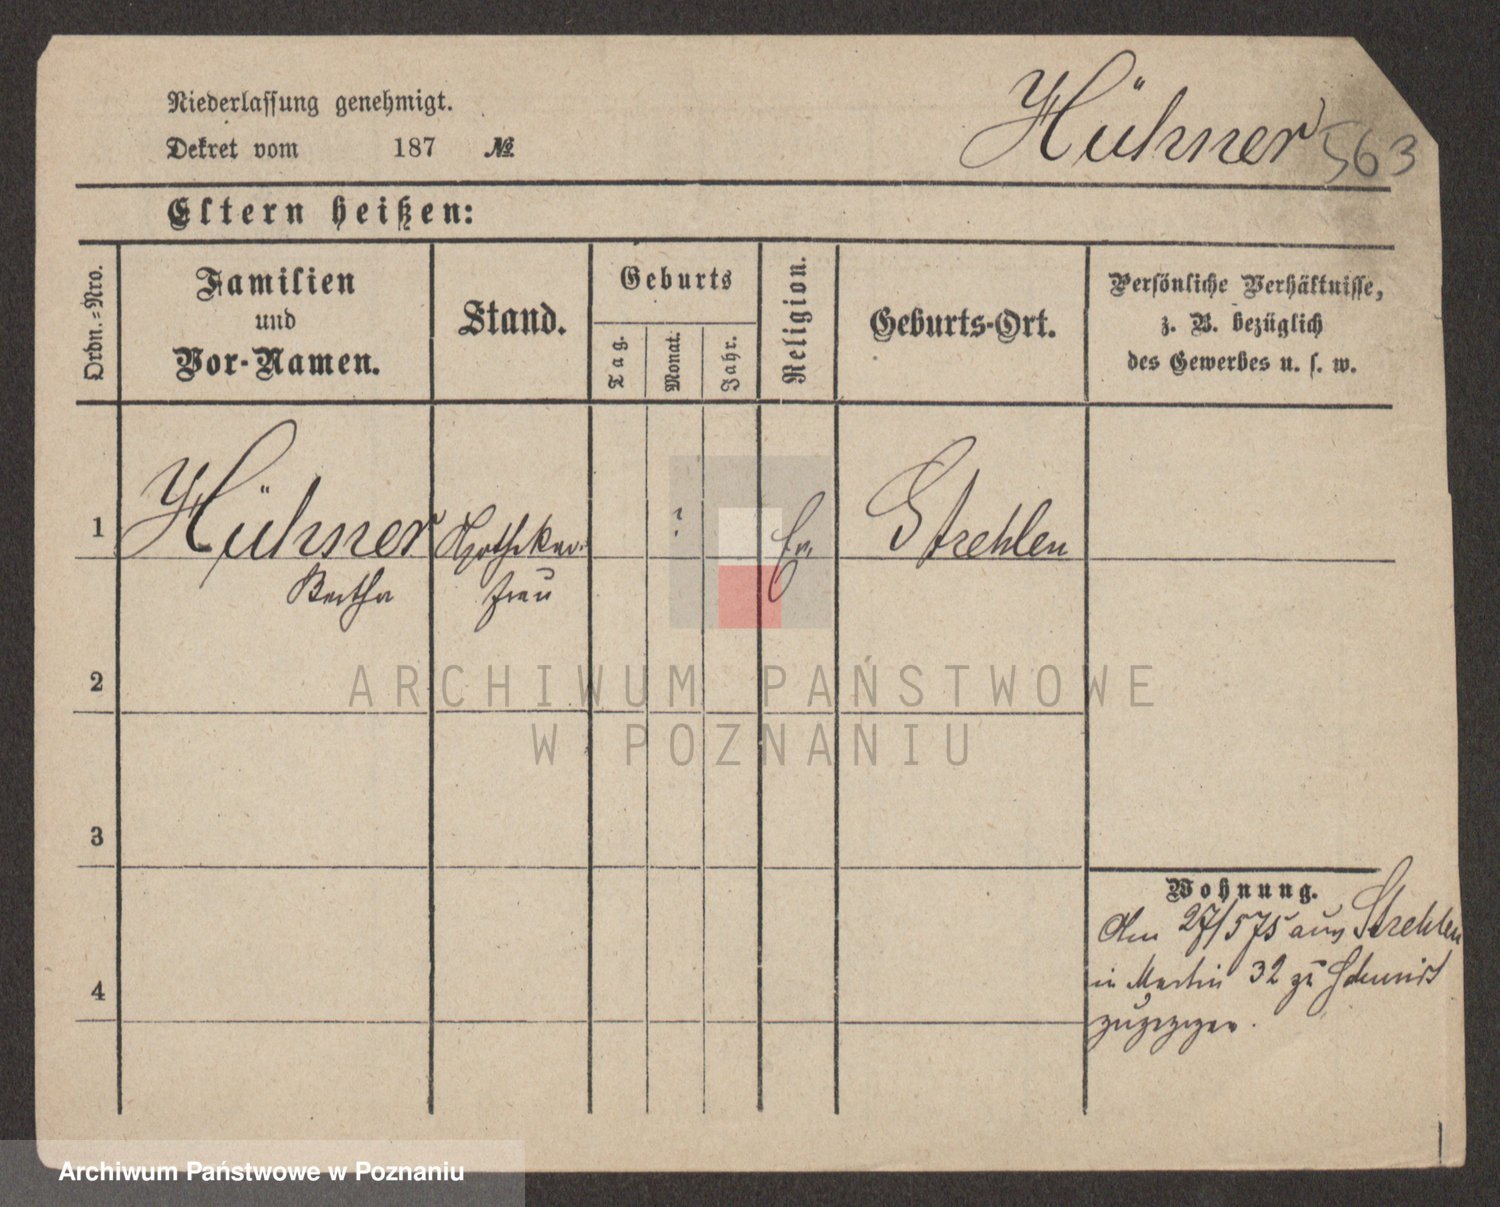 Niederlassung genehmigt.
Dekret vom 187 №
Hühner 563
Eltern heißen:
Ordn.-Nro.
Familien
und
Vor-Namen.
Stand.
Geburts
Tag.
Monat.
Jahr.
Religion.
Geburts-Ort.
Persönliche Verhältnisse,
z. B. bezüglich
des Gewerbes u. s. w.
1 Hühner Apotheker ? Ev. Strehlen
Bertha frau
2
3
4
Wohnung.
Am 27/5 75 aus Strehlen
in Martin 32 zu Schmidt
zugezogen.
ARCHIWUM PAŃSTWOWE
W POZNANIU
Archiwum Państwowe w Poznaniu